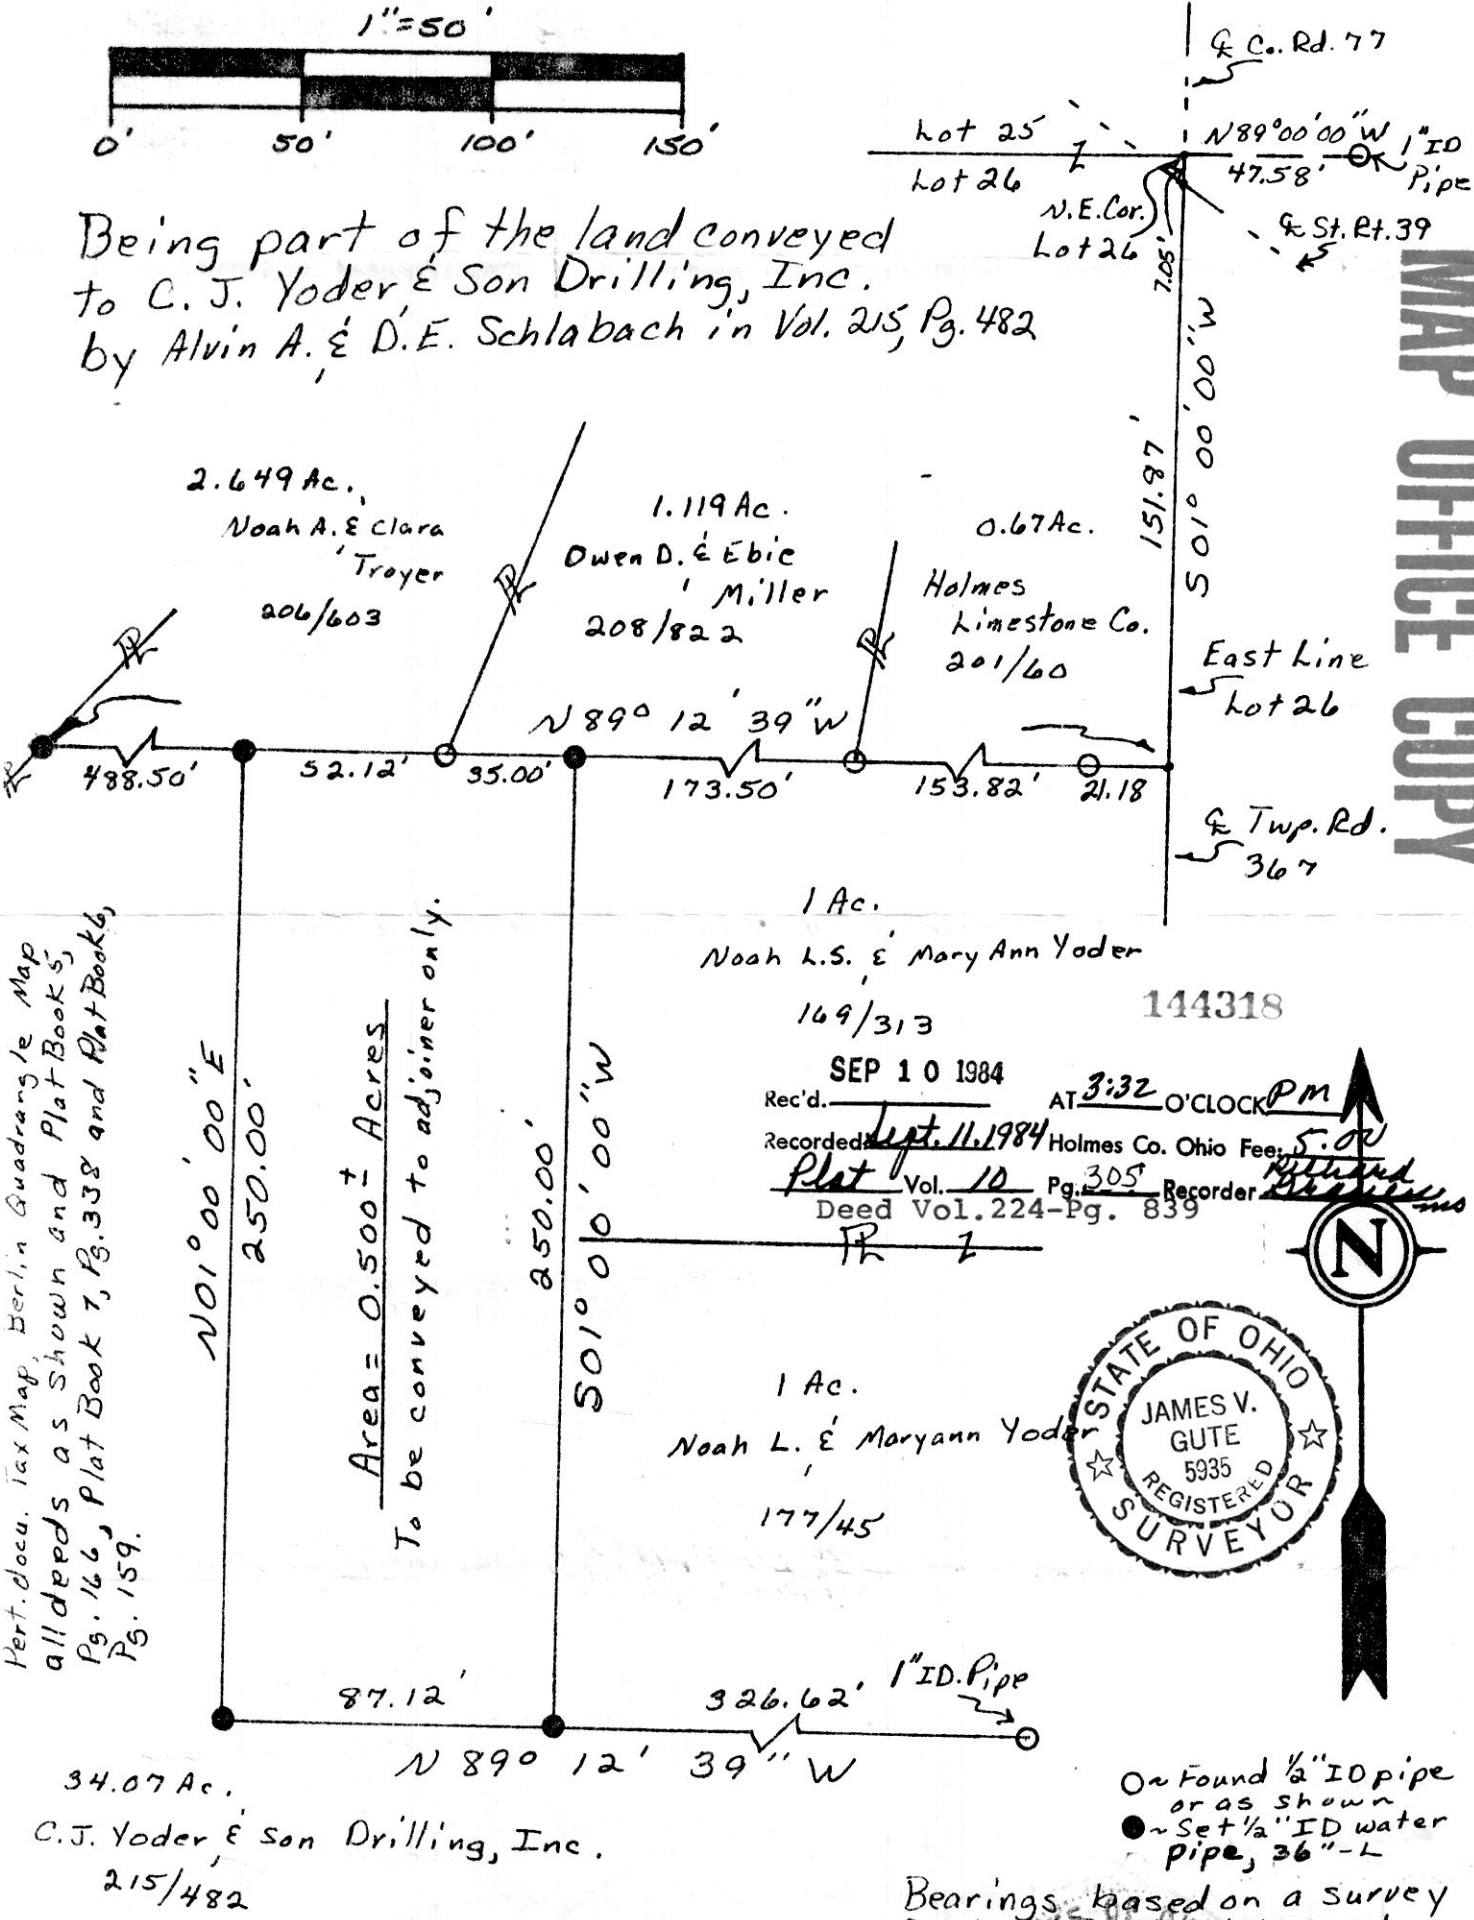 1"=50'
0' 50' 100' 150'
℄ Co. Rd. 77
Lot 25
Lot 26
N89°00'00"W
47.58'
1"ID
Pipe
N.E. Cor.
Lot 26
7.05'
℄ St. Rt. 39
Being part of the land conveyed
to C. J. Yoder & Son Drilling, Inc.
by Alvin A. & D.E. Schlabach in Vol. 215, Pg. 482
MAP OFFICE COPY
2.649 Ac.
Noah A. & Clara
Troyer
206/603
1.119 Ac.
Owen D. & Ebie
Miller
208/822
0.67 Ac.
Holmes
Limestone Co.
201/60
151.87'
S 01° 00' 00" W
East Line
Lot 26
PL
PL
PL
PL
N 89° 12' 39" W
488.50'
52.12'
35.00'
173.50'
153.82'
21.18
℄ Twp. Rd.
367
1 Ac.
Noah L.S. & Mary Ann Yoder
169/313
144318
SEP 10 1984
Rec'd. AT 3:32 O'CLOCK PM
Recorded Sept. 11, 1984 Holmes Co. Ohio Fee: 5.00
Plat Vol. 10 Pg. 305 Recorder
Deed Vol.224-Pg. 839
PL
N
Pert. docu. Tax Map, Berlin Quadrangle Map
all deeds as shown and Plat Book 5,
Pg. 166, Plat Book 7, Pg. 338 and Plat Book 6,
Pg. 159.
N01°00'00"E
250.00'
Area = 0.500± Acres
To be conveyed to adjoiner only.
250.00'
S01°00'00"W
1 Ac.
Noah L. & Maryann Yoder
177/45
STATE OF OHIO
JAMES V.
GUTE
5935
REGISTERED
SURVEYOR
87.12'
326.62'
1"ID. Pipe
N 89° 12' 39" W
34.07 Ac.
C.J. Yoder & Son Drilling, Inc.
215/482
O ~ Found ½" ID pipe
or as shown
● ~ Set ½" ID water
pipe, 36"-L
Bearings based on a survey